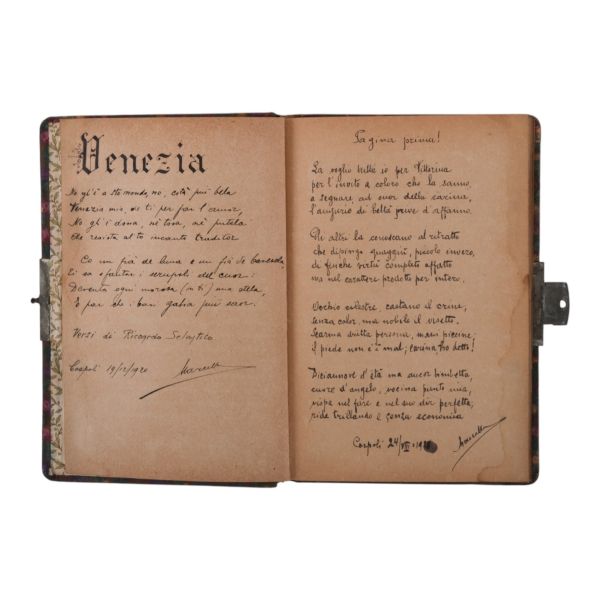 Venezia
No gh'è a sto mondo, no, cità più bela
Venezia mia, de ti per far l'amor,
No gh'è dona, nè tosa, nè putela
che resista al to incanto traditor
Co un fià de luna e un fià de bavesela,
Ti sa sfantar i scrupoli del cuor:
Deventa ogni morosa in ti una stela,
E par che i basi gabia più saor.
Versi di Riccardo Selvatico
19/12/1920
Marcello
Pagina prima!
La voglio bella io per Vittorina
per l'invito a coloro che la sanno,
a segnare, ad onor della carina,
l'augurio di beltà prive d'affanno.
Gli altri la conoscano al ritratto
che dipingo quaggiù, piccolo invero,
di fluide virtù completo affatto
ma nel carattere prodotto per intero.
Occhio cilestre, castano il crine,
senza color, ma nobile il visetto,
Scarma dritta persona, mani piccine;
il piede non c'è mal; carina, ho detto!
Diciannove d'età ma ancor bimbetta,
cuore d'angelo, vocina punto mia,
vispa nel fare e nel suo dir perfetta,
ride trillando e senza economia
24/VII
Marcello